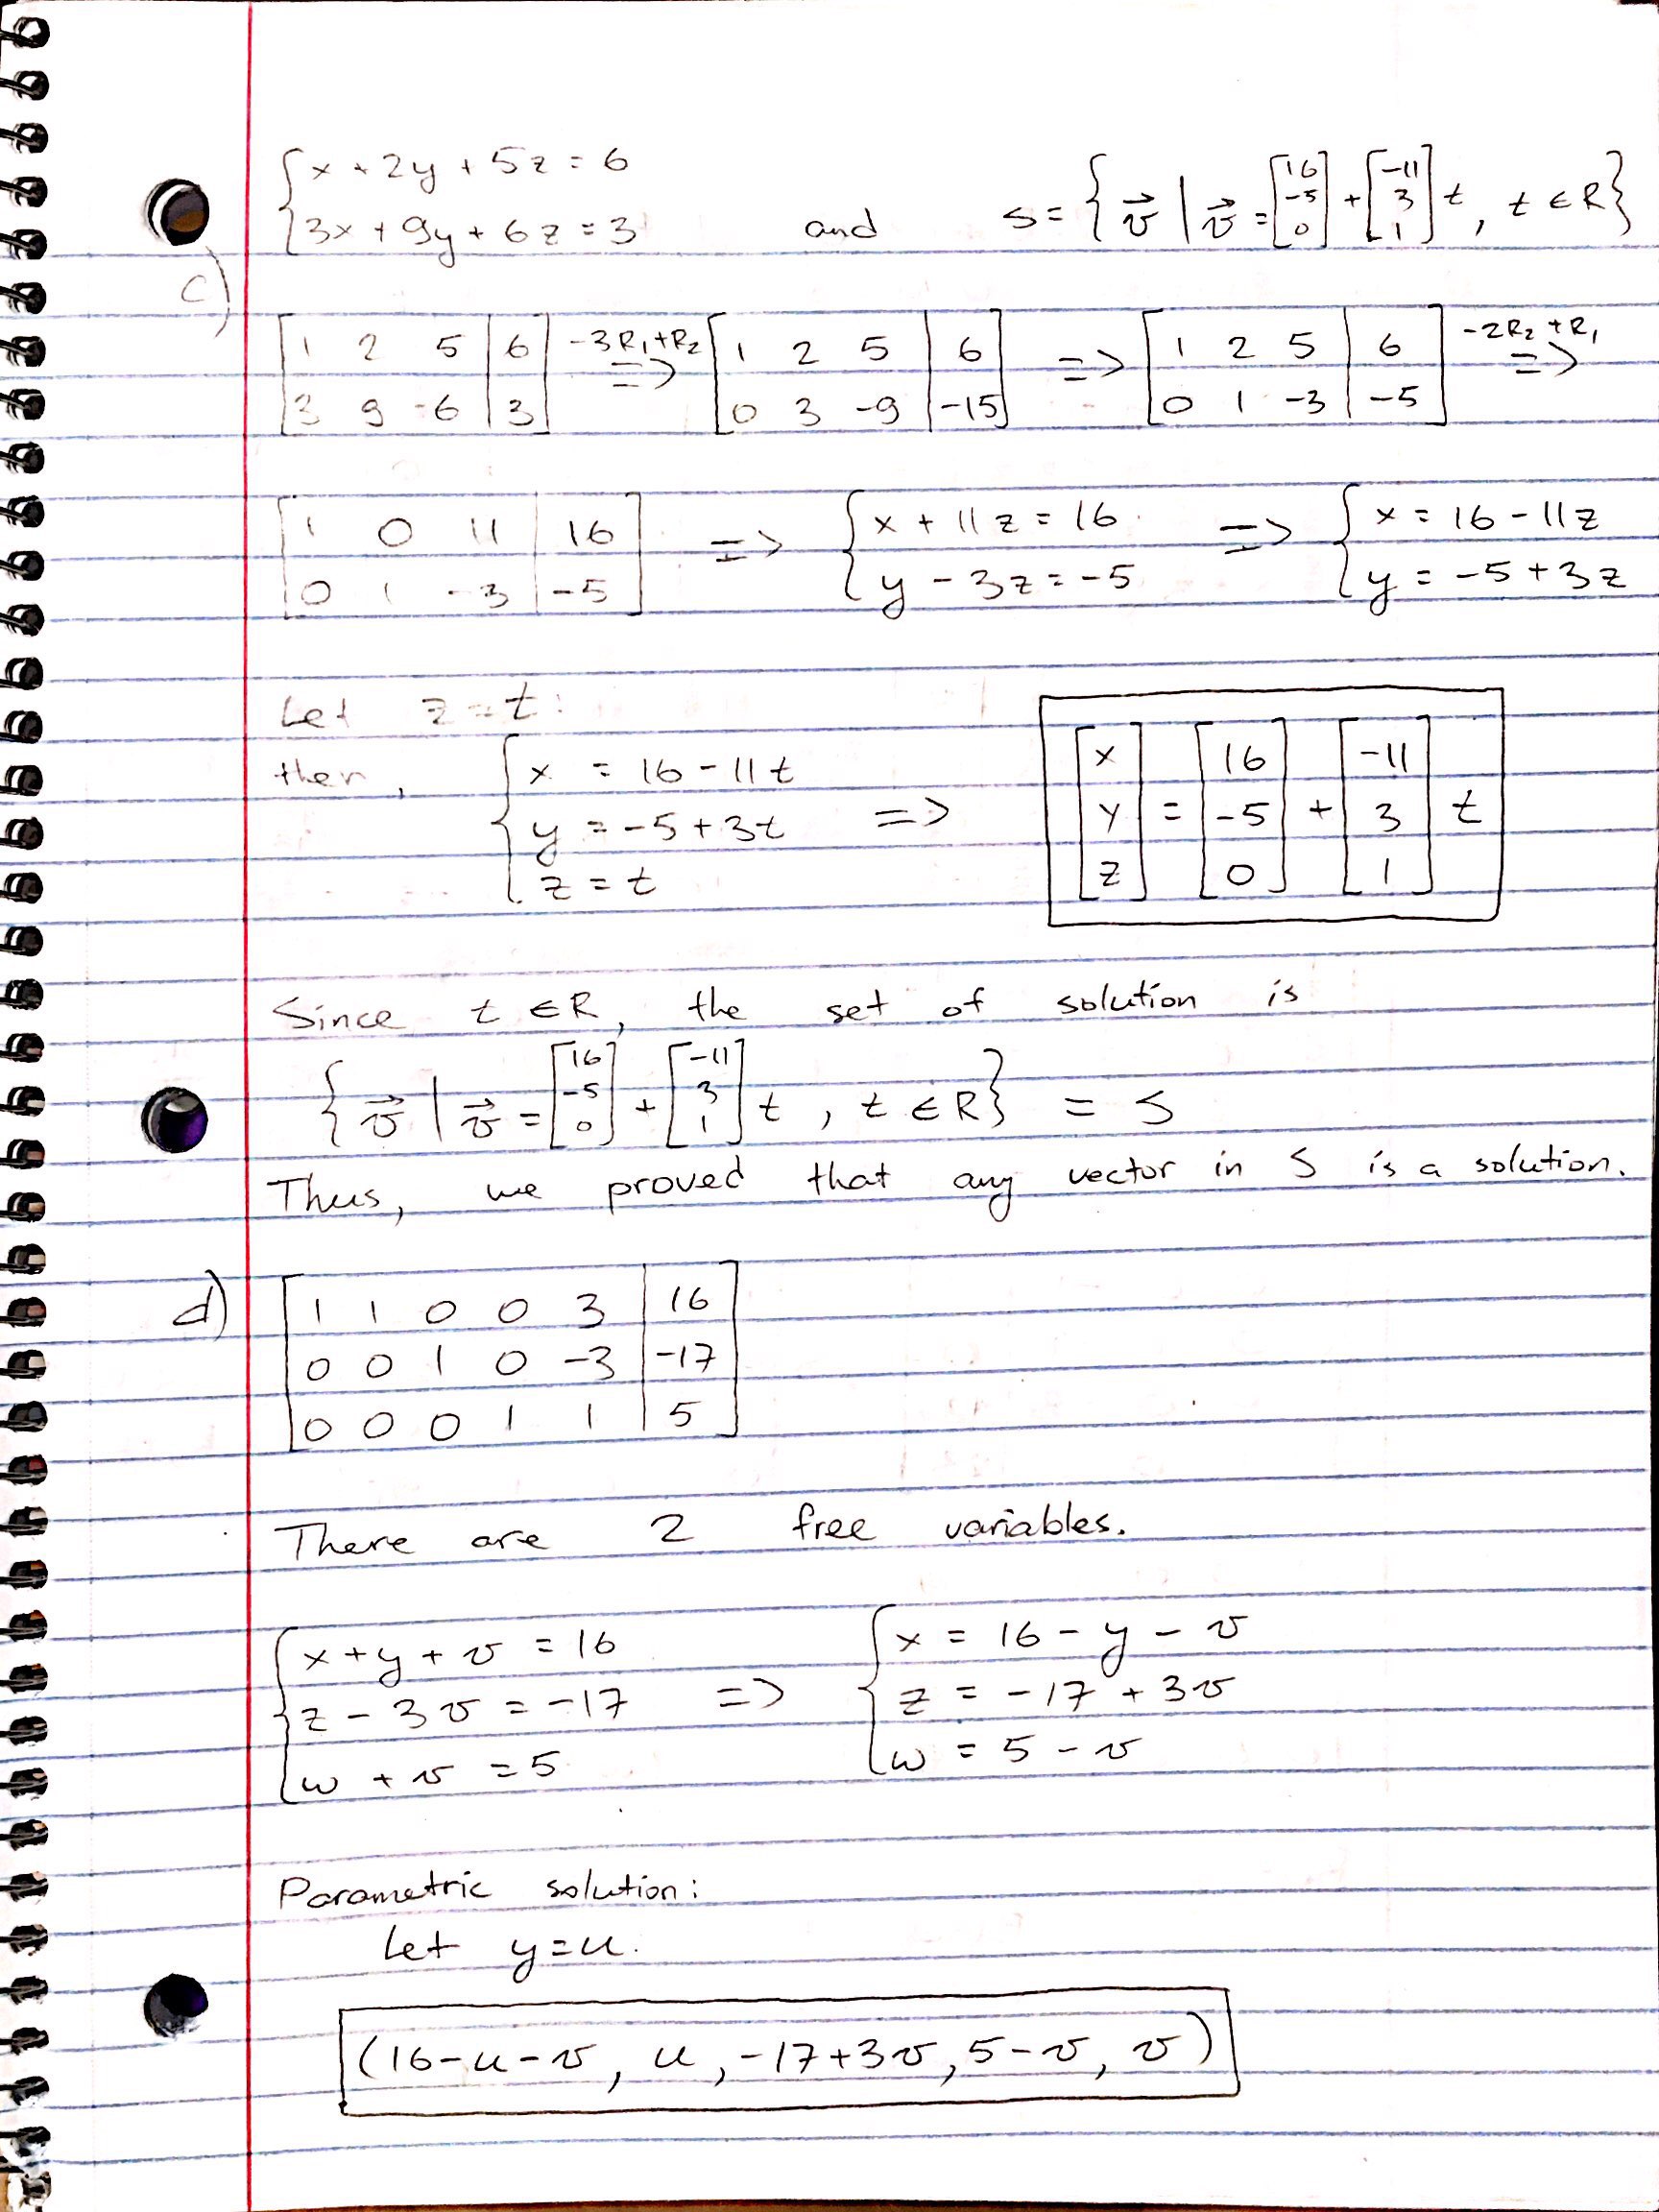 { x + 2y + 5z = 6
{ 3x + 9y + 6z = 3 and S = { v⃗ | v⃗ = [16 -5 0] + [-11 3 1] t, t ∈ R }
c)
[ 1 2 5 | 6 ] -3R₁+R₂ => [ 1 2 5 | 6 ] => [ 1 2 5 | 6 ] -2R₂+R₁ =>
[ 3 9 -6 | 3 ] [ 0 3 -9 | -15 ] [ 0 1 -3 | -5 ]
[ 1 0 11 | 16 ] => { x + 11z = 16 => { x = 16 - 11z
[ 0 1 -3 | -5 ] { y - 3z = -5 { y = -5 + 3z
Let z = t:
then, { x = 16 - 11t
{ y = -5 + 3t => [x y z] = [16 -5 0] + [-11 3 1] t
{ z = t
Since t ∈ R, the set of solution is
{ v⃗ | v⃗ = [16 -5 0] + [-11 3 1] t, t ∈ R } = S
Thus, we proved that any vector in S is a solution.
d) [ 1 1 0 0 3 | 16 ]
[ 0 0 1 0 -3 | -17 ]
[ 0 0 0 1 1 | 5 ]
There are 2 free variables.
{ x + y + v = 16 { x = 16 - y - v
{ z - 3v = -17 => { z = -17 + 3v
{ w + v = 5 { w = 5 - v
Parametric solution:
Let y = u.
(16-u-v, u, -17+3v, 5-v, v)